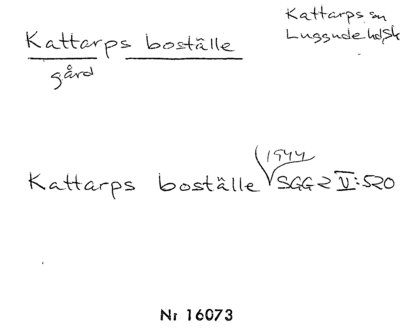 Kattarps sn
Luggude hd, Sk
Kattarps boställe
gård
1944
Kattarps boställe SGG 2 V:520
Nr 16073